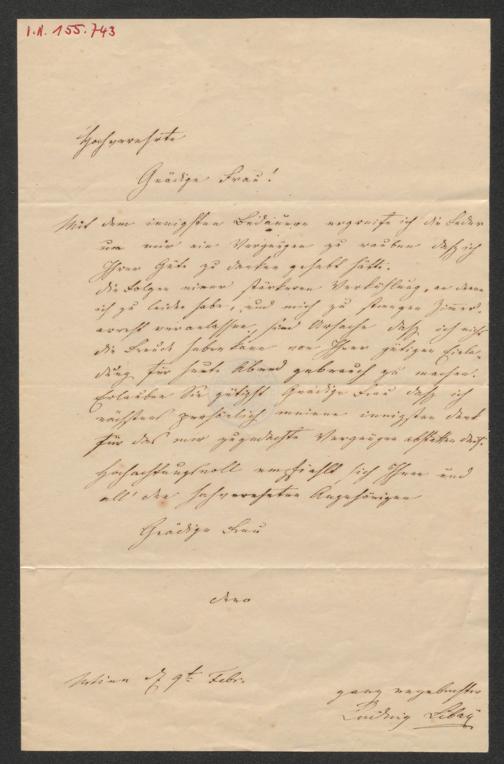 I.N. 155.743
Hochverehrte
Gnädige Frau!
Mit dem innigsten Bedauern ergreife ich die Feder
um mir ein Vergnügen zu rauben daß ich
Ihrer Güte zu danken gehabt hätte.
Die Folgen einer stärkeren Verkühlung, an denen
ich zu leiden habe, und mich zu strengen Zimmer-
arrest veranlassen, sind Ursache daß ich nicht
die Freude haben kann von Ihrer gütigen Einla-
dung für heute Abend gebrauch zu machen.
Erlauben Sie gütigst Gnädige Frau daß ich
nächstens persönlich meinen innigsten dank
für das mir zugedachte Vergnügen abstatten darf.
Hochachtungsvoll empfiehlt sich Ihnen und
all' den hochverehrten Angehörigen
Gnädige Frau
dero
Wien d 9t Febr.
ganz ergebenster
Ludwig Libay